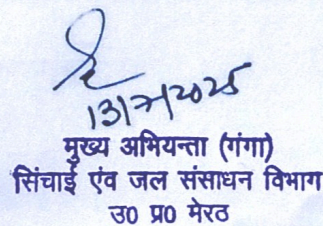 13/7/2025
मुख्य अभियन्ता (गंगा)
सिंचाई एंव जल संसाधन विभाग
उ0 प्र0 मेरठ